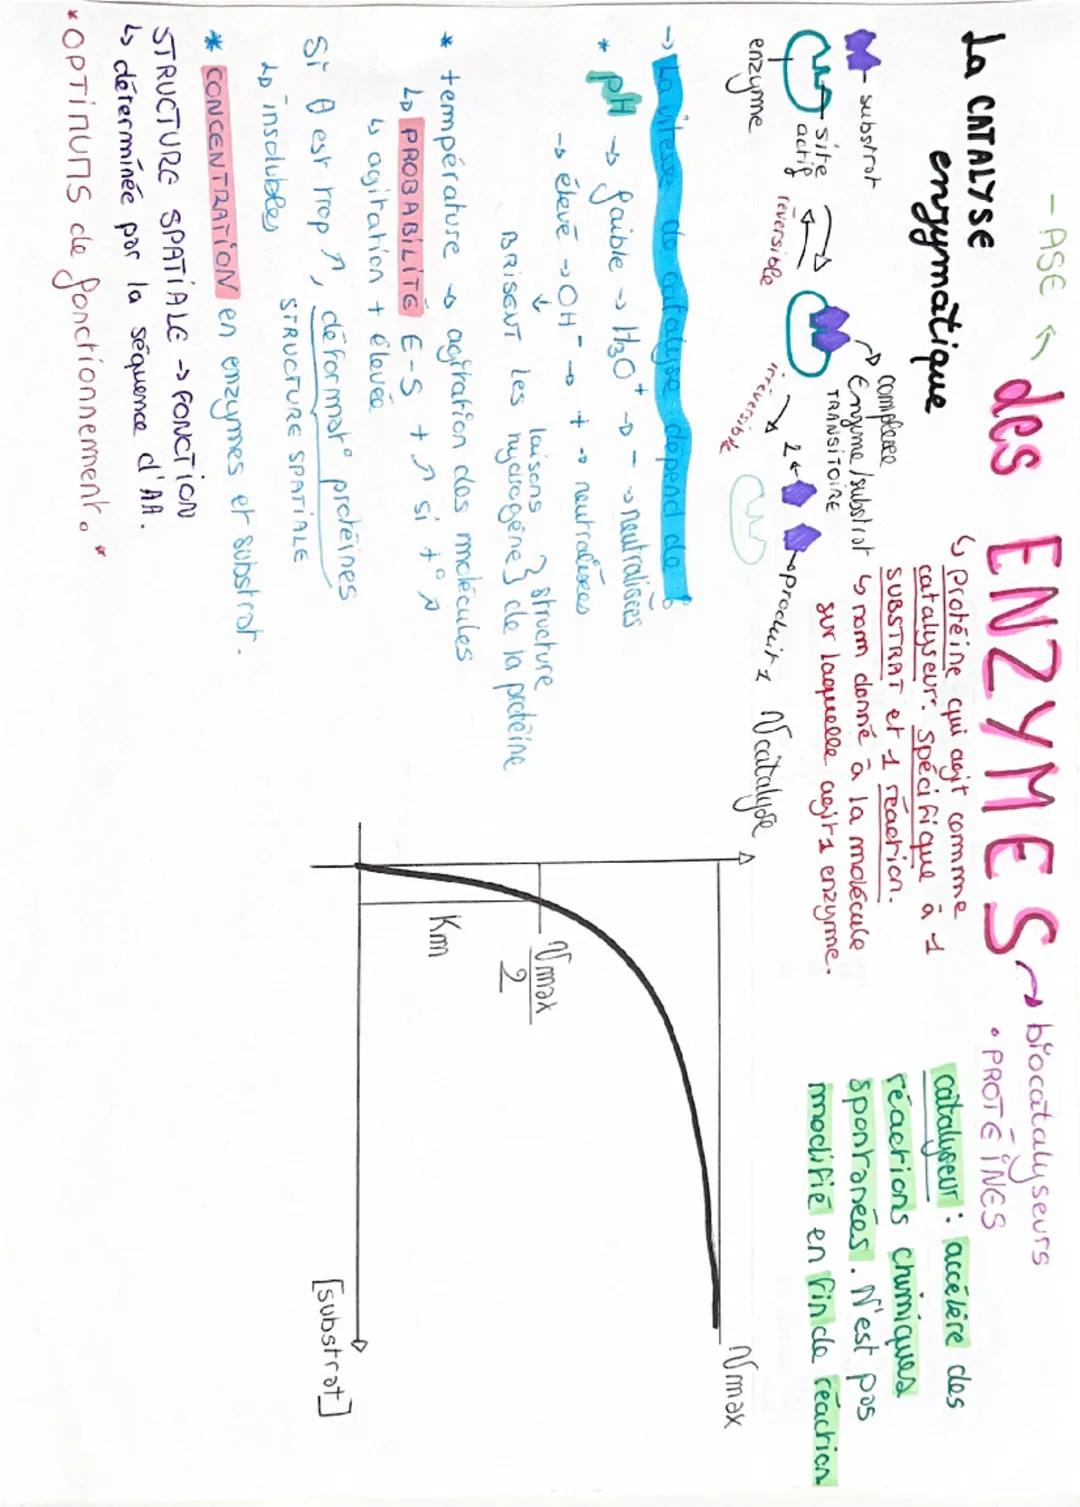 - ASE
des ENZYMES → biocatalyseurs
• PROTÉINES
↳ protéine qui agit comme
catalyseur. spécifique à 1
SUBSTRAT et 1 réaction.
↳ nom donné à la molécule
sur laquelle agit 1 enzyme.
catalyseur : accélère des
réactions chimiques
spontanées. N'est pas
modifié en fin de réaction
La CATALYSE
enzymatique
substrat
site
actif
enzyme
réversible
complexe
Enzyme/substrat
TRANSITOIRE
irréversible
2
produits
→ La vitesse de catalyse dépend de
* pH → faible → H3O+ → - → neutralisées
→ élevé → OH- → + → neutralisées
↓
BRISENT les liaisons hydrogène } structure de la protéine
* température → agitation des molécules
↳ PROBABILITÉ E-S + ↗ si t° ↗
↳ agitation + élevée
Si θ est trop ↗, déformat° protéines
STRUCTURE SPATIALE
↳ insolubles
* CONCENTRATION en enzymes et substrat.
STRUCTURE SPATIALE → FONCTION
↳ déterminée par la séquence d'AA.
*OPTIMUMS de fonctionnement.*
Vcatalyse
Vmax
Vmax
2
Km
[substrat]